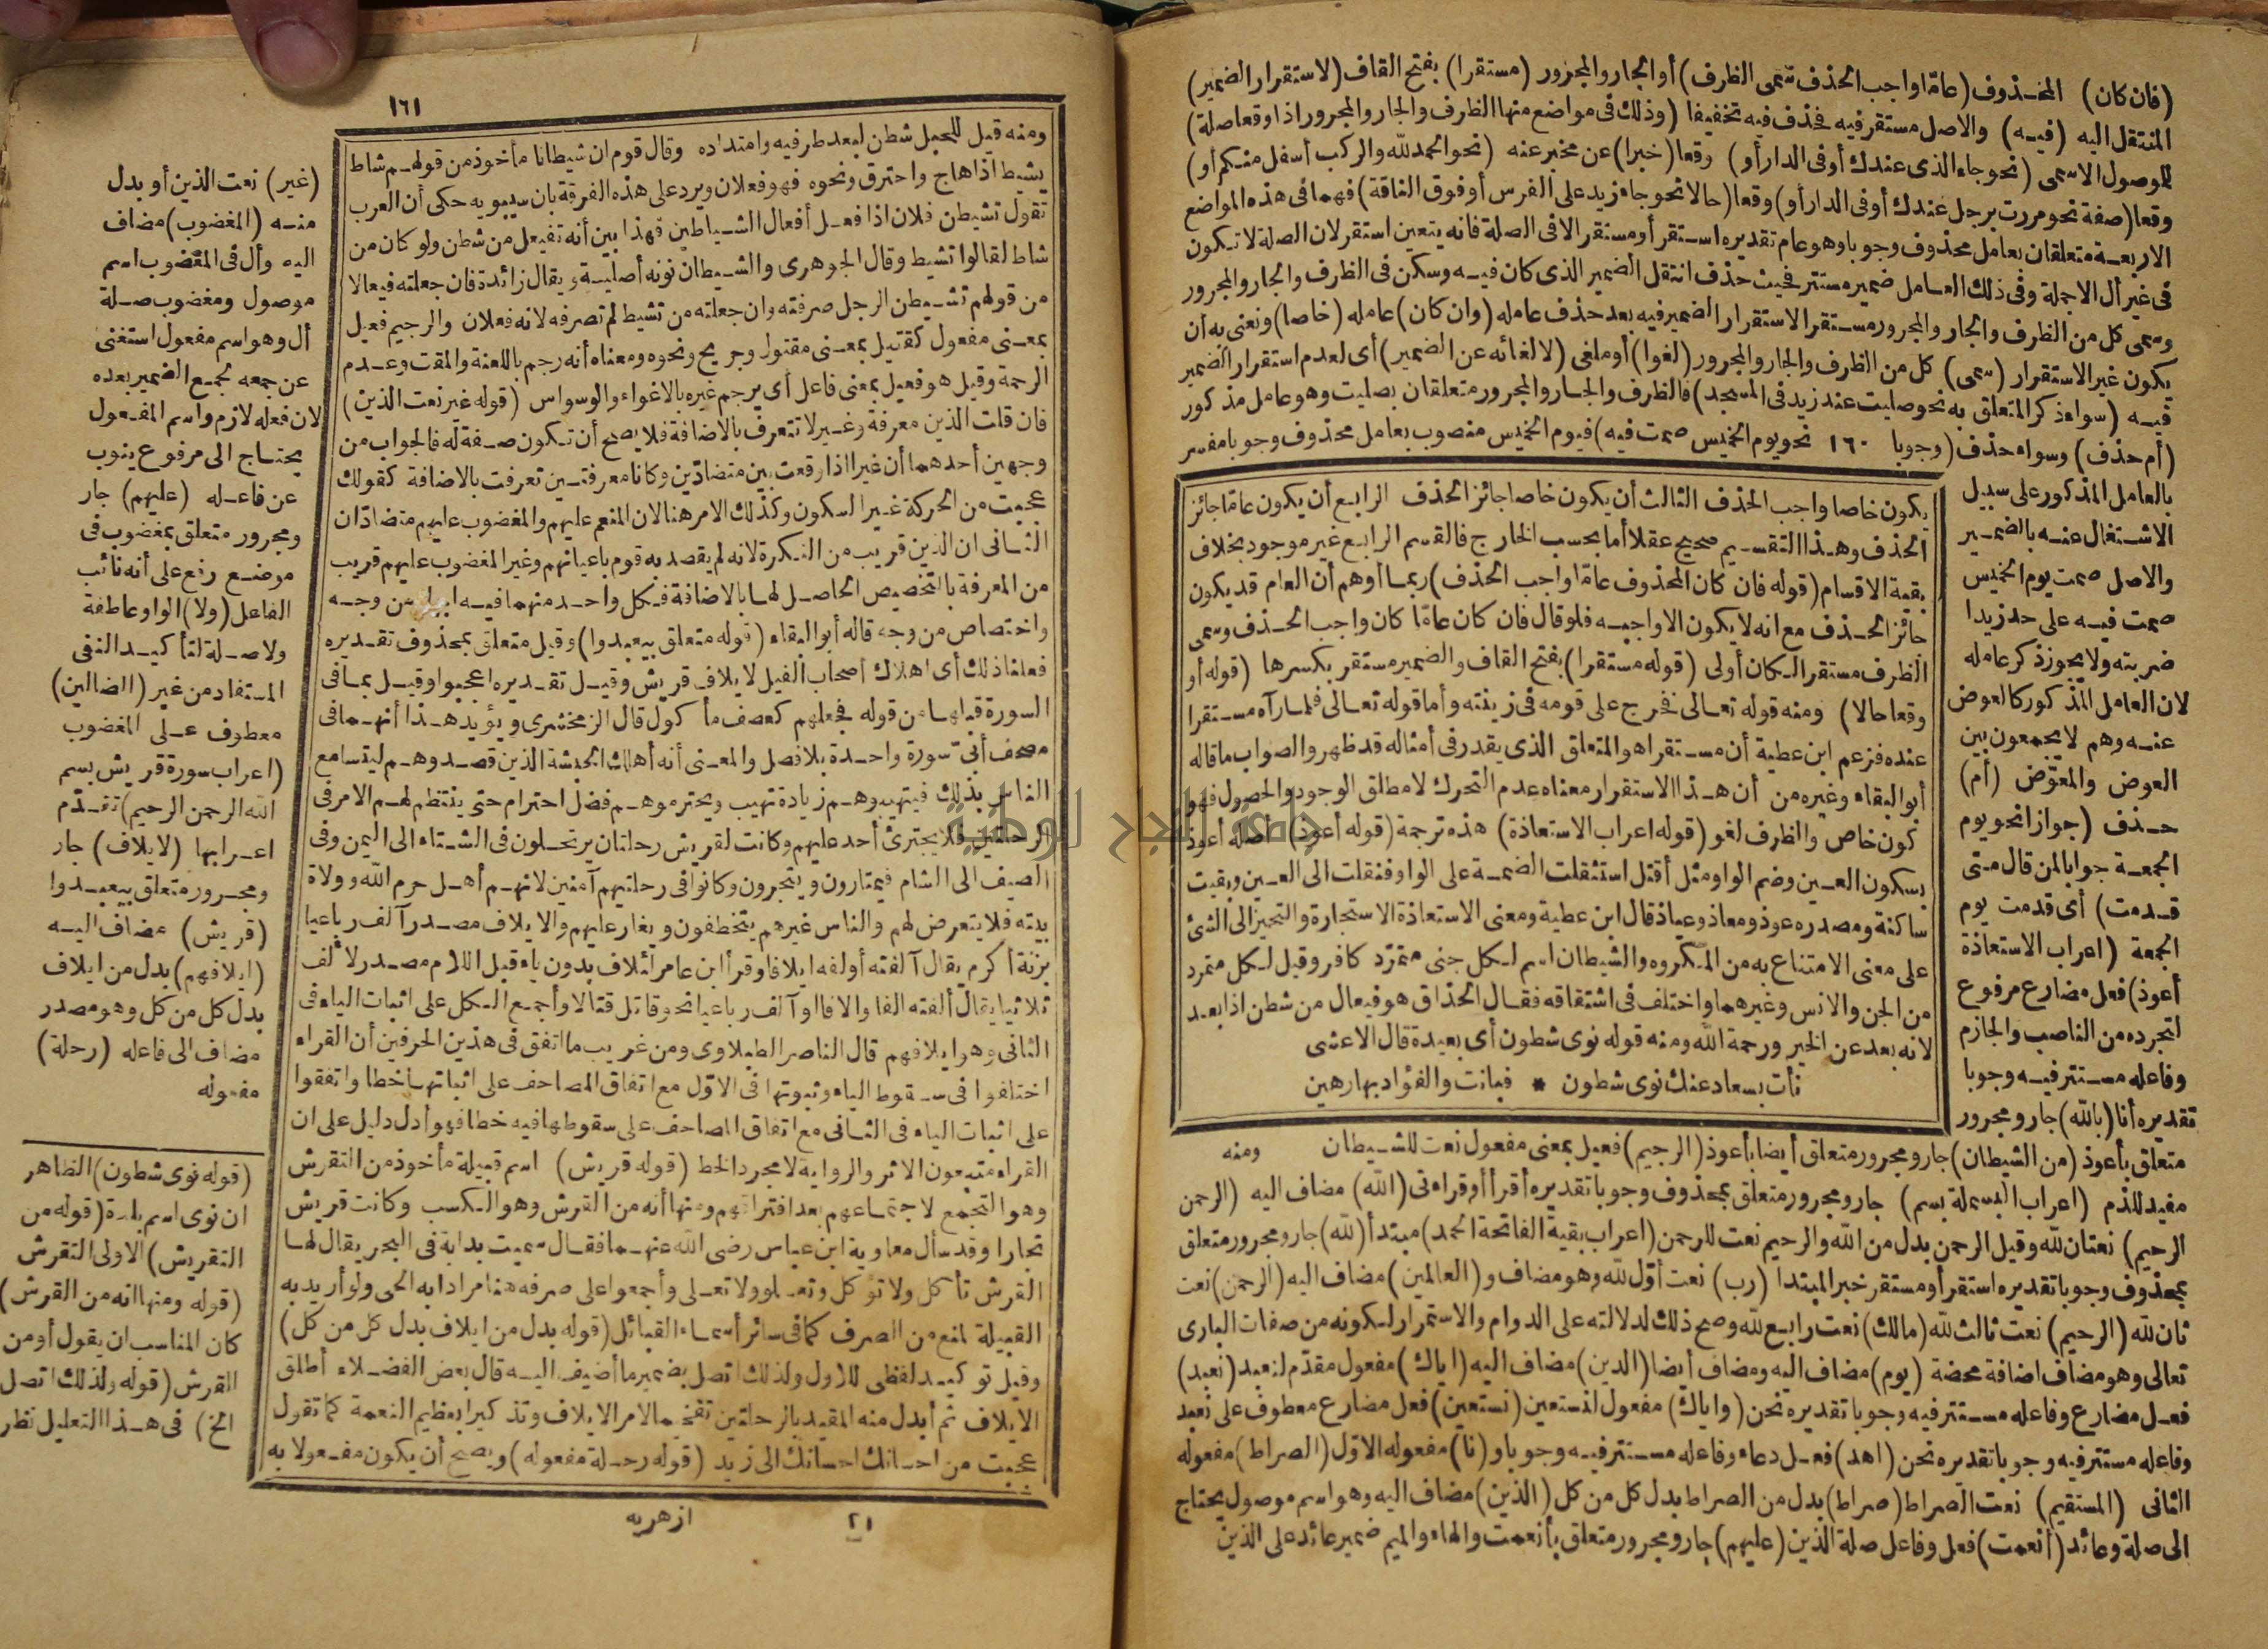 (فان كان) المحذوف (عاما واجب الحذف سمى الظرف) أو الجار والمجرور (مستقرا) بفتح القاف (لاستقرار الضمير)
المنتقل اليه (فيه) والاصل مستقر فيه فحذف فيه تخفيفا (وذلك فى مواضع منها الظرف والجار والمجرور اذا وقعا صلة)
للموصول الاسمى (نحو جاء الذى عندك أو فى الدار أو) وقعا (خبرا) عن مخبر عنه (نحو الحمد لله والركب أسفل منكم أو)
وقعا (صفة نحو مررت برجل عندك أو فى الدار أو) وقعا (حالا نحو جاء زيد على الفرس أو فوق الناقة) فهما فى هذه المواضع
الاربعة متعلقان بعامل محذوف وجوبا وهو عام تقديره استقر أو مستقر الا فى الصلة فانه يتعين استقر لان الصلة لا تكون
فى غير أل الا جملة وفى ذلك العامل ضمير مستتر فحيث حذف انتقل الضمير الذى كان فيه وسكن فى الظرف والجار والمجرور
وسمى كل من الظرف والجار والمجرور مستقرا لاستقرار الضمير فيه بعد حذف عامله (وان كان) عامله (خاصا) ونعنى به أن
يكون غير الاستقرار (سمى) كل من الظرف والجار والمجرور (لغوا) أو ملغى (لالغائه عن الضمير) أى لعدم استقرار الضمير
فيه (سواء ذكر المتعلق به نحو صليت عند زيد فى المسجد) فالظرف والجار والمجرور متعلقان بصليت وهو عامل مذكور
(أم حذف) وسواء حذف (وجوبا ١٦٠ نحو يوم الخميس صمت فيه) فيوم الخميس منصوب بعامل محذوف وجوبا مفسر
بالعامل المذكور على سبيل
الاشتغال عنه بالضمير
والاصل صمت يوم الخميس
صمت فيه على حد زيدا
ضربته ولا يجوز ذكر عامله
لان العامل المذكور كالعوض
عنه وهم لا يجمعون بين
العوض والمعوّض (أم)
حذف (جوازا نحو يوم
الجمعة جوابا لمن قال متى
قدمت) أى قدمت يوم
الجمعة (اعراب الاستعاذة
أعوذ) فعل مضارع مرفوع
لتجرده من الناصب والجازم
وفاعله مستتر فيه وجوبا
تقديره أنا (بالله) جار ومجرور
متعلق بأعوذ (من الشيطان) جار ومجرور متعلق أيضا بأعوذ (الرجيم) فعيل بمعنى مفعول نعت للشيطان
مفيد للذم (اعراب البسملة بسم) جار ومجرور متعلق بمحذوف وجوبا تقديره أقرأ أو قراءتى (الله) مضاف اليه (الرحمن
الرحيم) نعتان لله وقيل الرحمن بدل من الله والرحيم نعت للرحمن (اعراب بقية الفاتحة الحمد) مبتدأ (لله) جار ومجرور متعلق
بمحذوف وجوبا تقديره استقر أو مستقر خبر المبتدا (رب) نعت أوّل لله وهو مضاف و(العالمين) مضاف اليه (الرحمن) نعت
ثان لله (الرحيم) نعت ثالث لله (مالك) نعت رابع لله وصح ذلك لدلالته على الدوام والاستمرار لكونه من صفات البارى
تعالى وهو مضاف اضافة محضة (يوم) مضاف اليه ومضاف أيضا (الدين) مضاف اليه (اياك) مفعول مقدّم لنعبد (نعبد)
فعل مضارع وفاعله مستتر فيه وجوبا تقديره نحن (واياك) مفعول لنستعين (نستعين) فعل مضارع معطوف على نعبد
وفاعله مستتر فيه وجوبا تقديره نحن (اهد) فعل دعاء وفاعله مستتر فيه وجوبا و(نا) مفعوله الاوّل (الصراط) مفعوله
الثانى (المستقيم) نعت الصراط (صراط) بدل من الصراط بدل كل من كل (الذين) مضاف اليه وهو اسم موصول يحتاج
الى صلة وعائد (أنعمت) فعل وفاعل صلة الذين (عليهم) جار ومجرور متعلق بأنعمت والهاء والميم ضمير عائد على الذين
يكون خاصا واجب الحذف الثالث أن يكون خاصا جائز الحذف الرابع أن يكون عاما جائز
الحذف وهذا التقسيم صحيح عقلا أما بحسب الخارج فالقسم الرابع غير موجود بخلاف
بقية الاقسام (قوله فان كان المحذوف عامّا واجب الحذف) ربما أوهم أن العام قد يكون
جائز الحذف مع انه لا يكون الا واجبه فلو قال فان كان عامّا كان واجب الحذف وسمى
الظرف مستقرا لكان أولى (قوله مستقرا) بفتح القاف والضمير مستقر بكسرها (قوله أو
وقعا حالا) ومنه قوله تعالى فخرج على قومه فى زينته وأما قوله تعالى فلما رآه مستقرا
عنده فزعم ابن عطية أن مستقرا هو المتعلق الذى يقدر فى أمثاله قد ظهر والصواب ما قاله
أبو البقاء وغيره من أن هذا الاستقرار معناه عدم التحرك لا مطلق الوجود والحصول فهو
كون خاص والظرف لغو (قوله اعراب الاستعاذة) هذه ترجمة (قوله أعوذ) أصله أعوذ
بسكون العين وضم الواو مثل أقتل استثقلت الضمة على الواو فنقلت الى العين وبقيت
ساكنة ومصدره عوذ ومعاذ وعياذ قال ابن عطية ومعنى الاستعاذة الاستجارة والتحيز الى الشئ
على معنى الامتناع به من المكروه والشيطان اسم لكل جنى متمرّد كافر وقيل لكل متمرد
من الجن والانس وغيرهما واختلف فى اشتقاقه فقال الحذاق هو فيعال من شطن اذا بعد
لانه بعد عن الخير ورحمة الله ومنه قوله نوى شطون أى بعيدة قال الاعشى
نأت بسعاد عنك نوى شطون * فبانت والفؤاد بها رهين
ومنه
١٦١
ومنه قيل للحبل شطن لبعد طرفيه وامتداده وقال قوم ان شيطانا مأخوذ من قولهم شاط
يشيط اذا هاج واحترق ونحوه فهو فعلان ويرد على هذه الفرقة بان سيبويه حكى أن العرب
تقول تشيطن فلان اذا فعل أفعال الشياطين فهذا بين أنه تفيعل من شطن ولو كان من
شاط لقالوا تشيط وقال الجوهرى والشيطان نونه أصلية ويقال زائدة فان جعلته فيعالا
من قولهم تشيطن الرجل صرفته وان جعلته من تشيط لم تصرفه لانه فعلان والرجيم فعيل
بمعنى مفعول كقتيل بمعنى مقتول وجريح ونحوه ومعناه أنه رجم باللعنة والمقت وعدم
الرحمة وقيل هو فعيل بمعنى فاعل أى يرجم غيره بالاغواء والوسواس (قوله غير نعت الذين)
فان قلت الذين معرفة وغير لا تتعرف بالاضافة فلا يصح أن تكون صفة له فالجواب من
وجهين أحدهما أن غيرا اذا وقعت بين متضادّين وكانا معرفتين تعرفت بالاضافة كقولك
عجبت من الحركة غير السكون وكذلك الامر هنا لان المنعم عليهم والمغضوب عليهم متضادّان
الثانى ان الذين قريب من النكرة لانه لم يقصد به قوم باعيانهم وغير المغضوب عليهم قريب
من المعرفة بالتخصيص الحاصل لها بالاضافة فكل واحد منهما فيه ابهام من وجه
واختصاص من وجه قاله أبو البقاء (قوله متعلق بيعبدوا) وقيل متعلق بمحذوف تقديره
فعلنا ذلك أى اهلاك أصحاب الفيل لايلاف قريش وقيل تقديره اعجبوا وقيل بما فى
السورة قبلها من قوله فجعلهم كعصف مأكول قال الزمخشرى ويؤيد هذا أنهما فى
مصحف أبىّ سورة واحدة بلا فصل والمعنى أنه أهلك الحبشة الذين قصدوهم ليتسامع
الناس بذلك فيتهيبوهم زيادة تهيب ويحترموهم فضل احترام حتى ينتظم لهم الامر فى
الرحلتين فلا يجترئ أحد عليهم وكانت لقريش رحلتان يرتحلون فى الشتاء الى اليمن وفى
الصيف الى الشام فيمتارون ويتجرون وكانوا فى رحلتيهم آمنين لانهم أهل حرم الله وولاة
بيته فلا يتعرض لهم والناس غيرهم يتخطفون ويغار عليهم والايلاف مصدر آلف رباعيا
بزنة أكرم يقال آلفته أولفه ايلافا وقرأ ابن عامر لئلاف بدون ياء قبل اللام مصدر لالف
ثلاثيا يقال ألفته الفا والافا او آلف رباعيا نحو قاتل قتالا وأجمع الكل على اثبات الياء فى
الثانى وهو ايلافهم قال الناصر الطبلاوى ومن غريب ما اتفق فى هذين الحرفين أن القراء
اختلفوا فى سقوط الياء وثبوتها فى الاوّل مع اتفاق المصاحف على اثباتها خطا واتفقوا
على اثبات الياء فى الثانى مع اتفاق المصاحف على سقوطها فيه خطا فهو أدل دليل على ان
القراء متبعون الاثر والرواية لا مجرد الخط (قوله قريش) اسم قبيلة مأخوذ من التقرش
وهو التجمع لاجتماعهم بعد افتراقهم ومنها أنه من القرش وهو الكسب وكانت قريش
تجارا وقد سأل معاوية ابن عباس رضى الله عنهما فقال سميت بدابة فى البحر يقال لها
القرش تأكل ولا تؤكل وتعلو ولا تعلى وأجمعوا على صرفه هنا مرادا به الحى ولو أريد به
القبيلة لمنع من الصرف كما فى سائر أسماء القبائل (قوله بدل من ايلاف بدل كل من كل)
وقيل توكيد لفظى للاول ولذلك اتصل بضمير ما أضيف اليه قال بعض الفضلاء أطلق
الايلاف ثم أبدل منه المقيد بالرحلتين تفخيما لامر الايلاف وتذكيرا بعظيم النعمة كما تقول
عجبت من احسانك احسانك الى زيد (قوله رحلة مفعوله) ويصح أن يكون مفعولا به
(غير) نعت الذين أو بدل
منه (المغضوب) مضاف
اليه وأل فى المغضوب اسم
موصول ومغضوب صلة
أل وهو اسم مفعول استغنى
عن جمعه بجمع الضمير بعده
لان فعله لازم واسم المفعول
يحتاج الى مرفوع ينوب
عن فاعله (عليهم) جار
ومجرور متعلق بمغضوب فى
موضع رفع على أنه نائب
الفاعل (ولا) الواو عاطفة
ولا صلة لتأكيد النفى
المستفاد من غير (الضالين)
معطوف على المغضوب
(اعراب سورة قريش بسم
الله الرحمن الرحيم) تقدّم
اعرابها (لايلاف) جار
ومجرور متعلق بيعبدوا
(قريش) مضاف اليه
(ايلافهم) بدل من ايلاف
بدل كل من كل وهو مصدر
مضاف الى فاعله (رحلة)
مفعوله
(قوله نوى شطون) الظاهر
ان نوى اسم بلدة (قوله من
التقريش) الاولى التقرش
(قوله ومنها انه من القرش)
كان المناسب ان يقول أو من
القرش (قوله ولذلك اتصل
الخ) فى هذا التعليل نظر
٢١ ازهريه
جامعة النجاح الوطنية